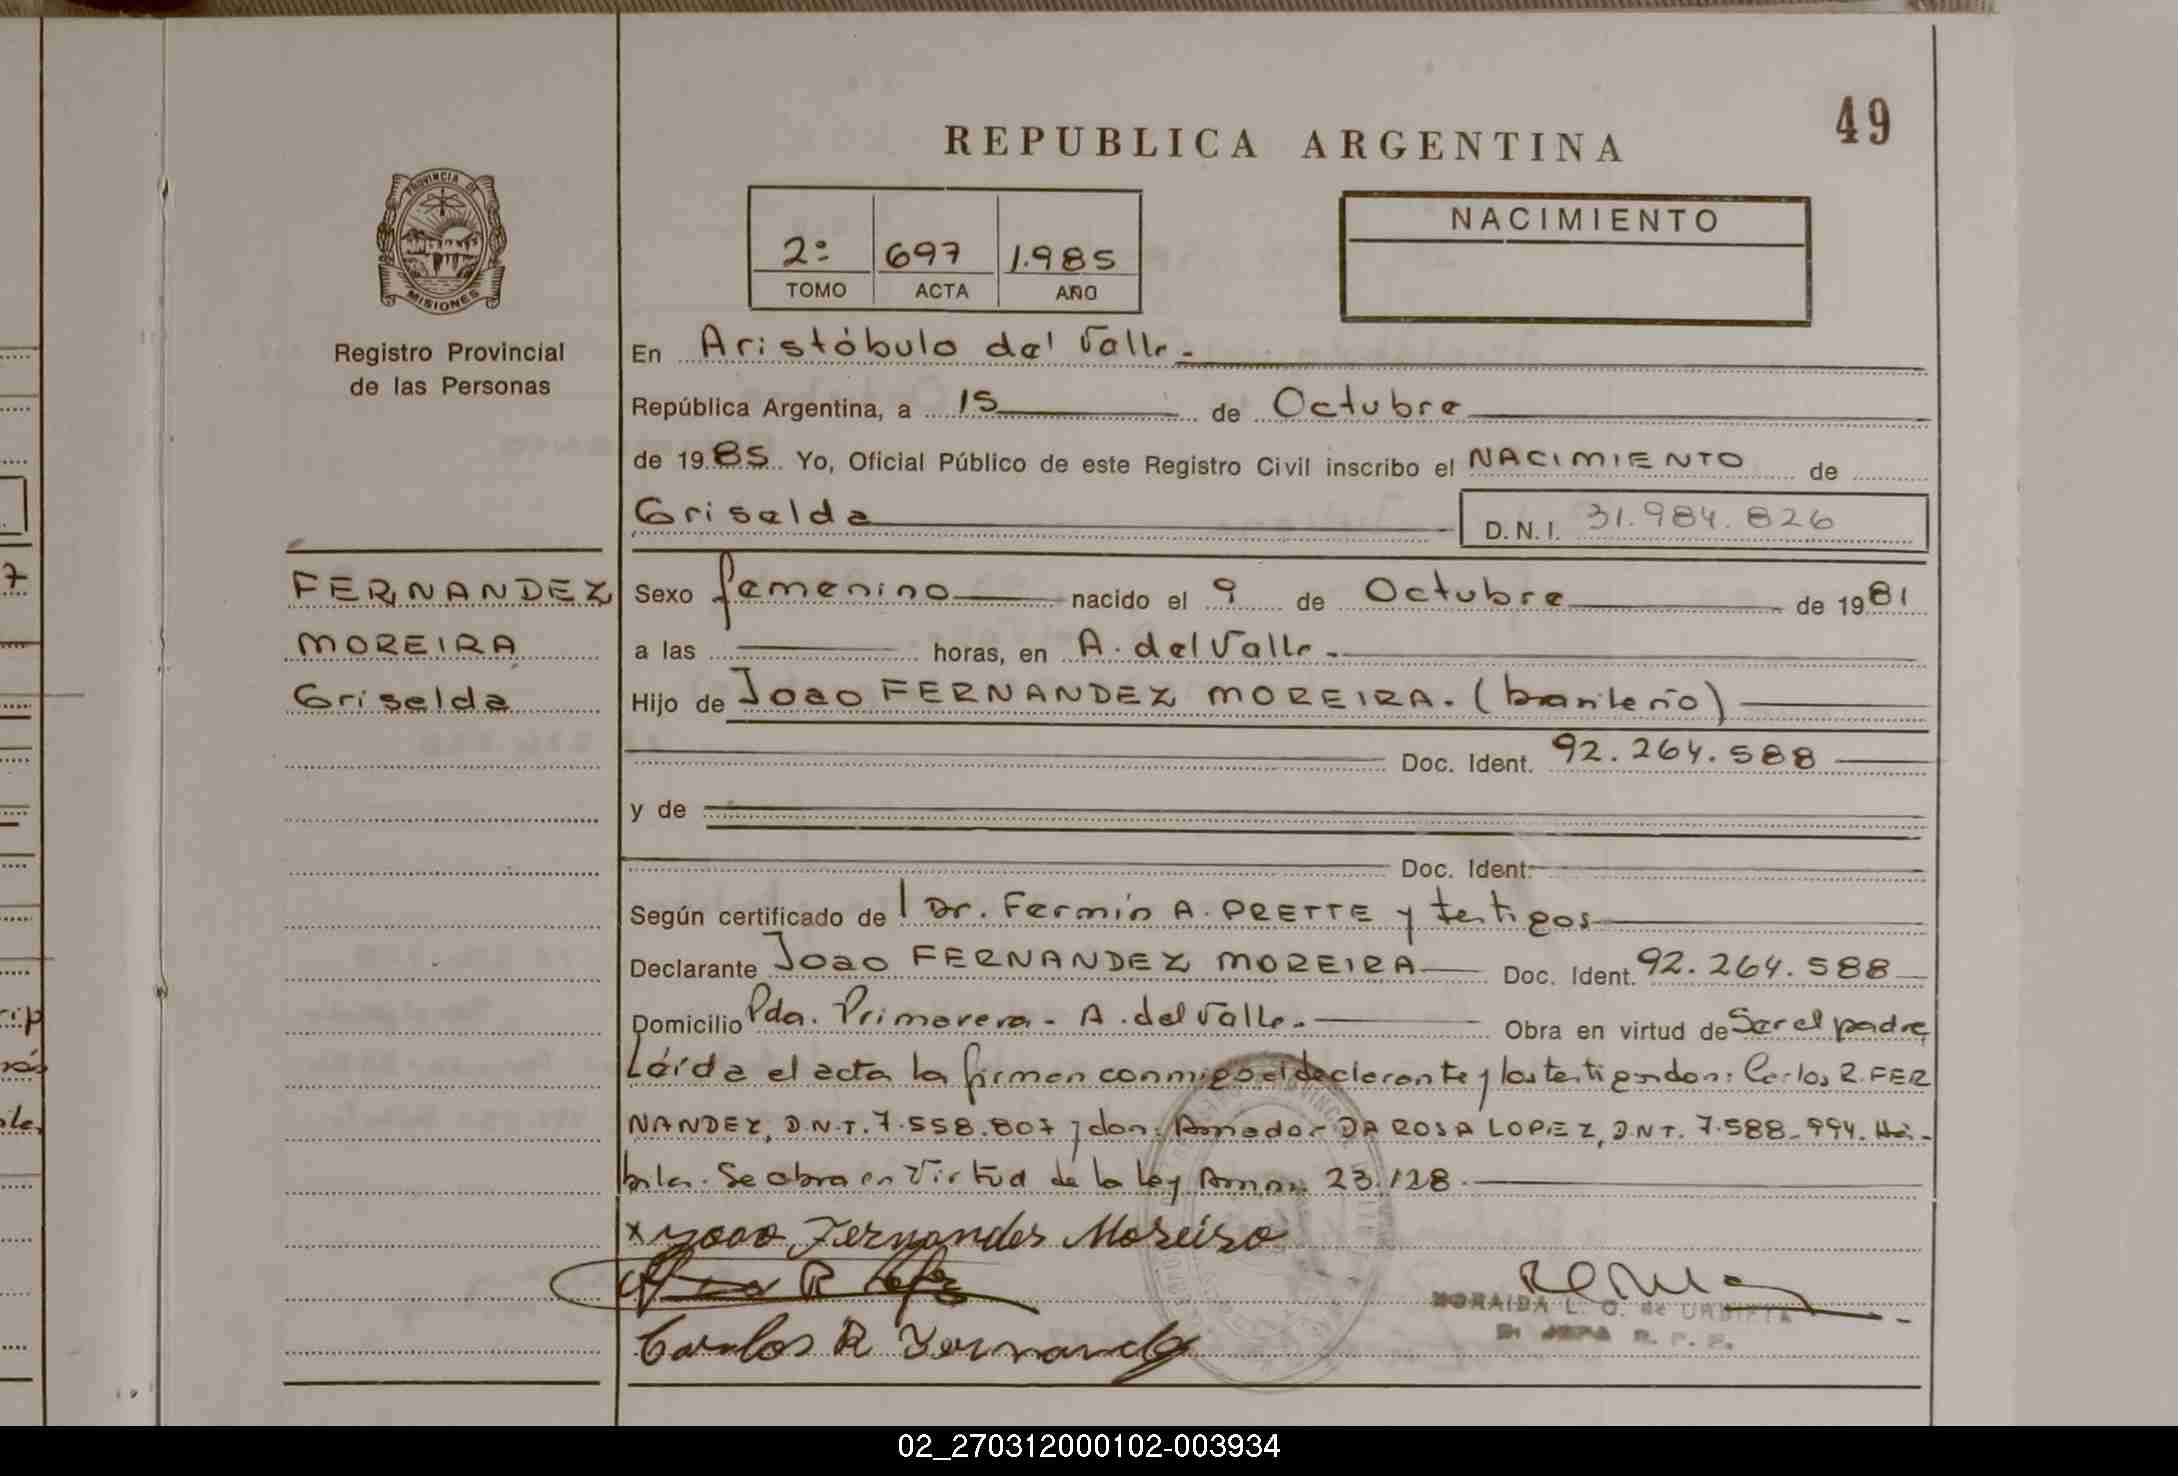 49
REPUBLICA ARGENTINA
PROVINCIA DE
MISIONES
Registro Provincial
de las Personas
2º 697 1.985
TOMO ACTA AÑO
NACIMIENTO
En Aristóbulo del Valle.-
República Argentina, a 15 de Octubre
de 1985 Yo, Oficial Público de este Registro Civil inscribo el NACIMIENTO de
Griselda D.N.I. 31.984.826
FERNANDEZ
MOREIRA
Griselda
Sexo femenino nacido el 9 de Octubre de 1981
a las horas, en A. del Valle.-
Hijo de Joao FERNANDEZ MOREIRA. (brasileño)
Doc. Ident. 92.264.588
y de
Doc. Ident.
Según certificado de l Dr. Fermín A. PRETTE y testigos
Declarante Joao FERNANDEZ MOREIRA Doc. Ident. 92.264.588
Domicilio Pda. Primavera - A. del Valle.- Obra en virtud de Ser el padre,
Léida el acta la firman conmigo el declarante y los testigos don: Carlos R. FER
NANDEZ, D.N.I. 7.558.807 y don: Amador DA ROSA LOPEZ, D.N.I. 7.588.994. Há-
biles. Se obra en Virtud de la Ley 23.128.
x Joao Fernandes Moreira
Carlos R Fernandez
MORAIDA L. O. de URBIETA
R. P. P.
02_270312000102-003934